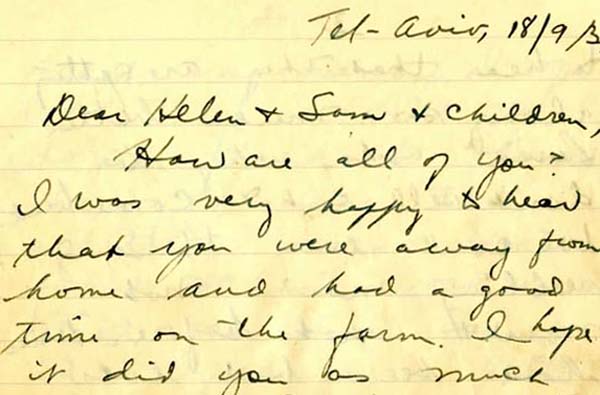 Tel-Aviv, 18/9/3
Dear Helen & Sam & children,
How are all of you?
I was very happy to hear
that you were away from
home and had a good
time on the farm. I hope
it did you as much